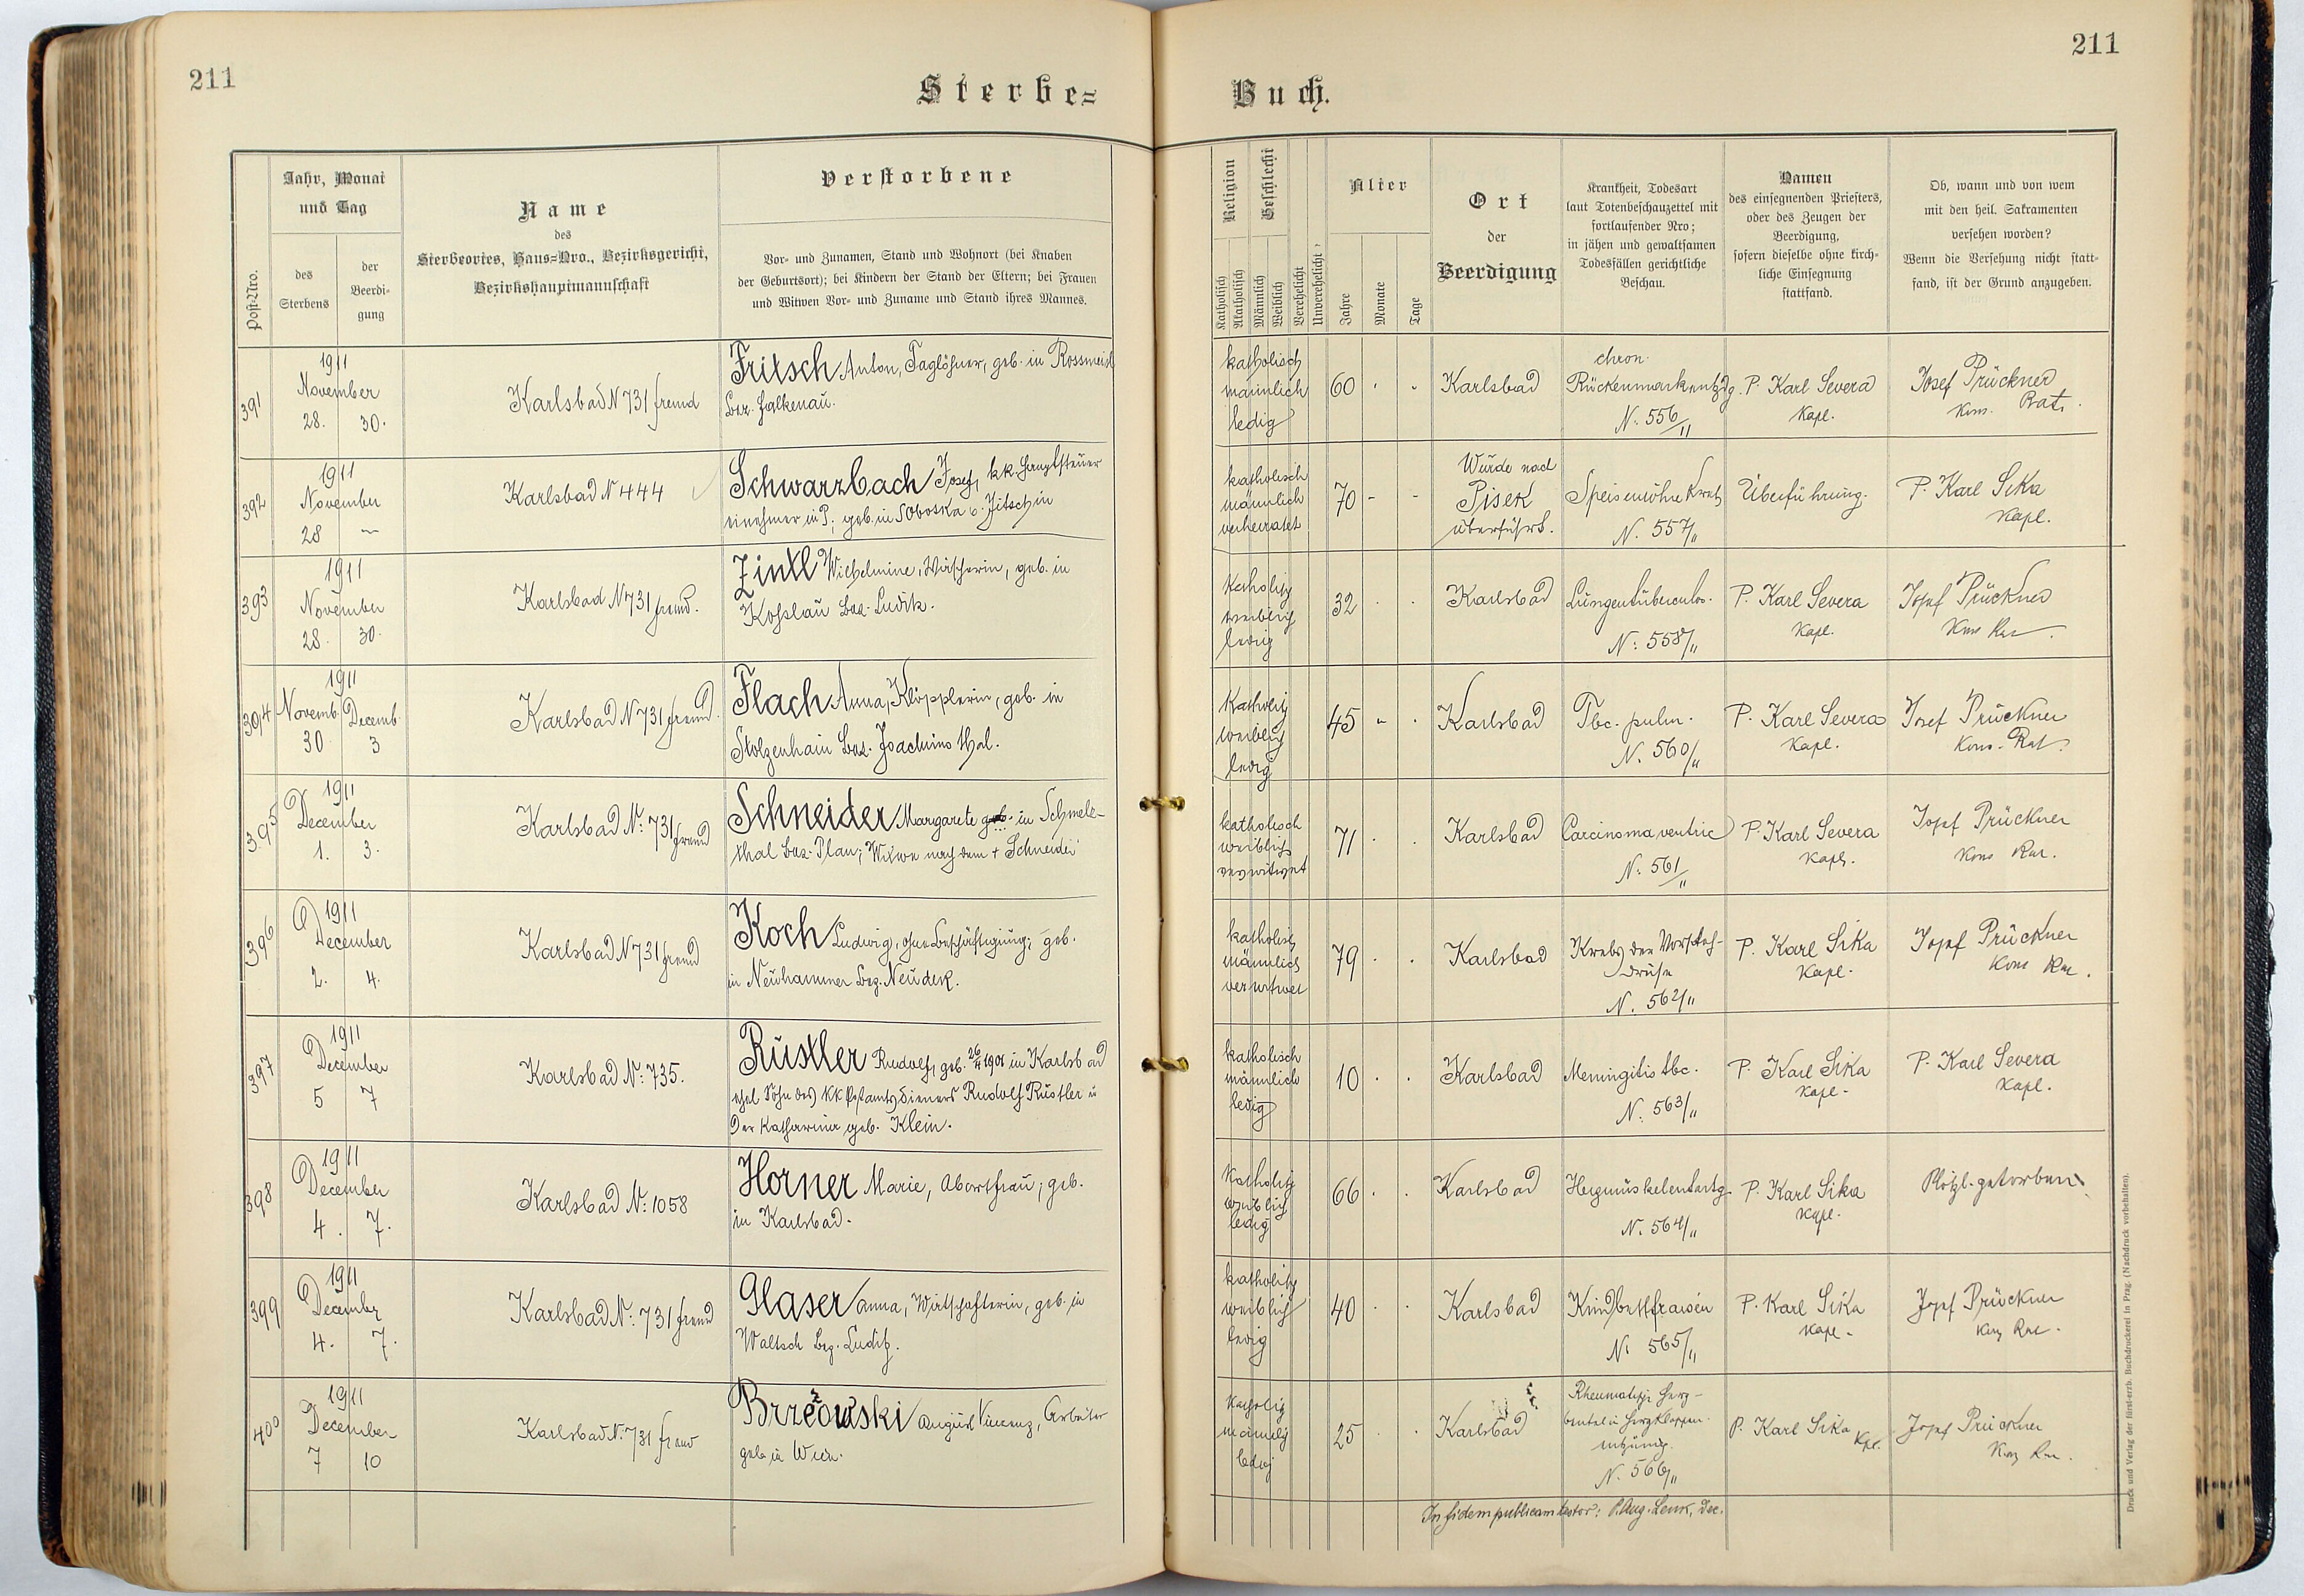 211
211
Sterbe=
Buch.
Post-Nro.
Jahr, Monat
und Tag
des
Sterbens
der
Beerdi-
gung
Name
des
Sterbeortes, Haus=Nro., Bezirksgericht,
Bezirkshauptmannschaft
Verstorbene
Vor- und Zunamen, Stand und Wohnort (bei Knaben
der Geburtsort); bei Kindern der Stand der Eltern; bei Frauen
und Witwen Vor- und Zuname und Stand ihres Mannes.
Religion
Katholisch
Akatholisch
Geschlecht
Männlich
Weiblich
Verehelicht
Unverehelicht
Alter
Jahre
Monate
Tage
Ort
der
Beerdigung
Krankheit, Todesart
laut Totenbeschauzettel mit
fortlaufender Nro;
in jähen und gewaltsamen
Todesfällen gerichtliche
Beschau.
Namen
des einsegnenden Priesters,
oder des Zeugen der
Beerdigung,
sofern dieselbe ohne kirch-
liche Einsegnung
stattfand.
Ob, wann und von wem
mit den heil. Sakramenten
versehen worden?
Wenn die Versehung nicht statt-
fand, ist der Grund anzugeben.
391
1911
November
28. 30.
Karlsbad N 731 fremd
Fritsch Anton, Taglöhner, geb. in Rossmeisl
Bez. Falkenau.
katholisch
männlich
ledig
60
Karlsbad
chron.
Rückenmarkentzdg.
N. 556/11
P. Karl Severa
Kapl.
Josef Prückner
Kons. Rat.
392
1911
November
28 —
Karlsbad N 444
Schwarzbach Josef, k.k. Hauptsteuer
einnehmer in P., geb. in Soboska b. Jitschin
katholisch
männlich
verheiratet
70 - -
Wurde nach
Pisek
überführt.
Speiseröhre Krebs
N. 557/11
Überführung.
P. Karl Sika
Kapl.
393
1911
November
28. 30.
Karlsbad N 731 fremd.
Zintl Wilhelmine, Wirtschaferin, geb. in
Koslau Bez. Luditz.
katholisch
weiblich
ledig
32
Karlsbad
Lungentuberculos.
N: 558/11
P. Karl Severa
Kapl.
Josef Prückner
Kons Rat.
394
1911
Novemb. Decemb.
30 3
Karlsbad N 731 fremd.
Flach Anna, Klöpplerin, geb. in
Stolzenhain Bez. Joachimsthal.
Katholisch
weiblich
ledig
45
Karlsbad
Tbc. pulm.
N. 560/11
P. Karl Severa
Kapl.
Josef Prückner
Kons. Rat.
395
1911
December
1. 3.
Karlsbad N: 731 fremd
Schneider Margarete geb. in Schmelz-
thal Bez. Plan; Witwe nach dem + Schneider
katholisch
weiblich
verwitwet
71
Karlsbad
Carcinoma ventric
N. 561/11
P. Karl Severa
Kapl.
Josef Prückner
Kons Rat.
396
1911
December
2. 4.
Karlsbad N 731 fremd
Koch Ludwig, ohne Beschäftigung, geb.
in Neuhammer Bez. Neudek.
katholisch
männlich
verwitwet
79
Karlsbad
Krebs der Vorsteh-
drüse
N. 562/11
P. Karl Sika
Kapl.
Josef Prückner
Kons Rat.
397
1911
December
5 7
Karlsbad N: 735.
Rustler Rudolf, geb. 26/4 1901 in Karlsbad
ehel Sohn des KK Postamtsdieners Rudolf Rustler u
der Katharina geb. Klein.
katholisch
männlich
ledig
10
Karlsbad
Meningitis tbc.
N. 563/11
P. Karl Sika
Kapl.
P. Karl Severa
Kapl.
398
1911
December
4. 7.
Karlsbad N: 1058
Horner Marie, Abortfrau, geb.
in Karlsbad.
katholisch
weiblich
ledig
66
Karlsbad
Herzmuskelentartg.
N. 564/11
P. Karl Sika
Kapl.
Plötzl. gestorben
399
1911
December
4. 7.
Karlsbad N: 731 fremd
Glaser Anna, Wirtschafterin, geb. in
Waltsch Bez. Luditz.
katholisch
weiblich
ledig
40
Karlsbad
Kindbettfraisen
N. 565/11
P. Karl Sika
Kapl.
Josef Prückner
Kons Rat.
400
1911
December
7 10
Karlsbad N. 731 fremd
Brzezowski August Vincenz, Arbeiter
geb. in Wien.
katholisch
männlich
ledig
25
Karlsbad
Rheumatische Herz-
beutel u Herzklappen
entzündg.
N. 566/11
P. Karl Sika Kpl.
Josef Prückner
Kons Rat.
In fidem publicam testor: P. Aug. Lenk, Dec.
Druck und Verlag der fürsterzb. Buchdruckerei in Prag. (Nachdruck vorbehalten).